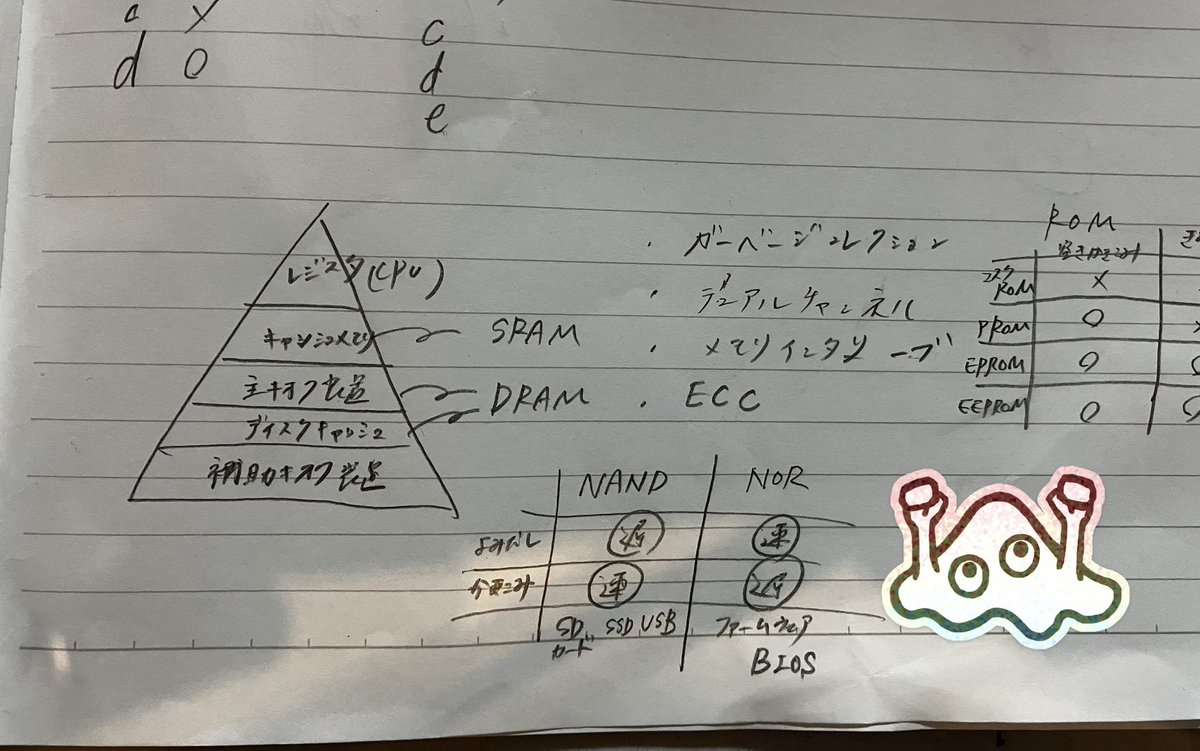 y
d o
c
d
e
レジスタ(CPU)
キャッシュメモリ SRAM
主キオク装置 DRAM
ディスクキャッシュ
補助キオク装置
・ガーベージコレクション
・デュアルチャンネル
・メモリインタリーブ
・ECC
ROM
マスクROM ×
PROM ○
EPROM ○
EEPROM ○
NAND NOR
よみだし 遅 速
速 遅
SDカード SSD USB ファームウェア
BIOS